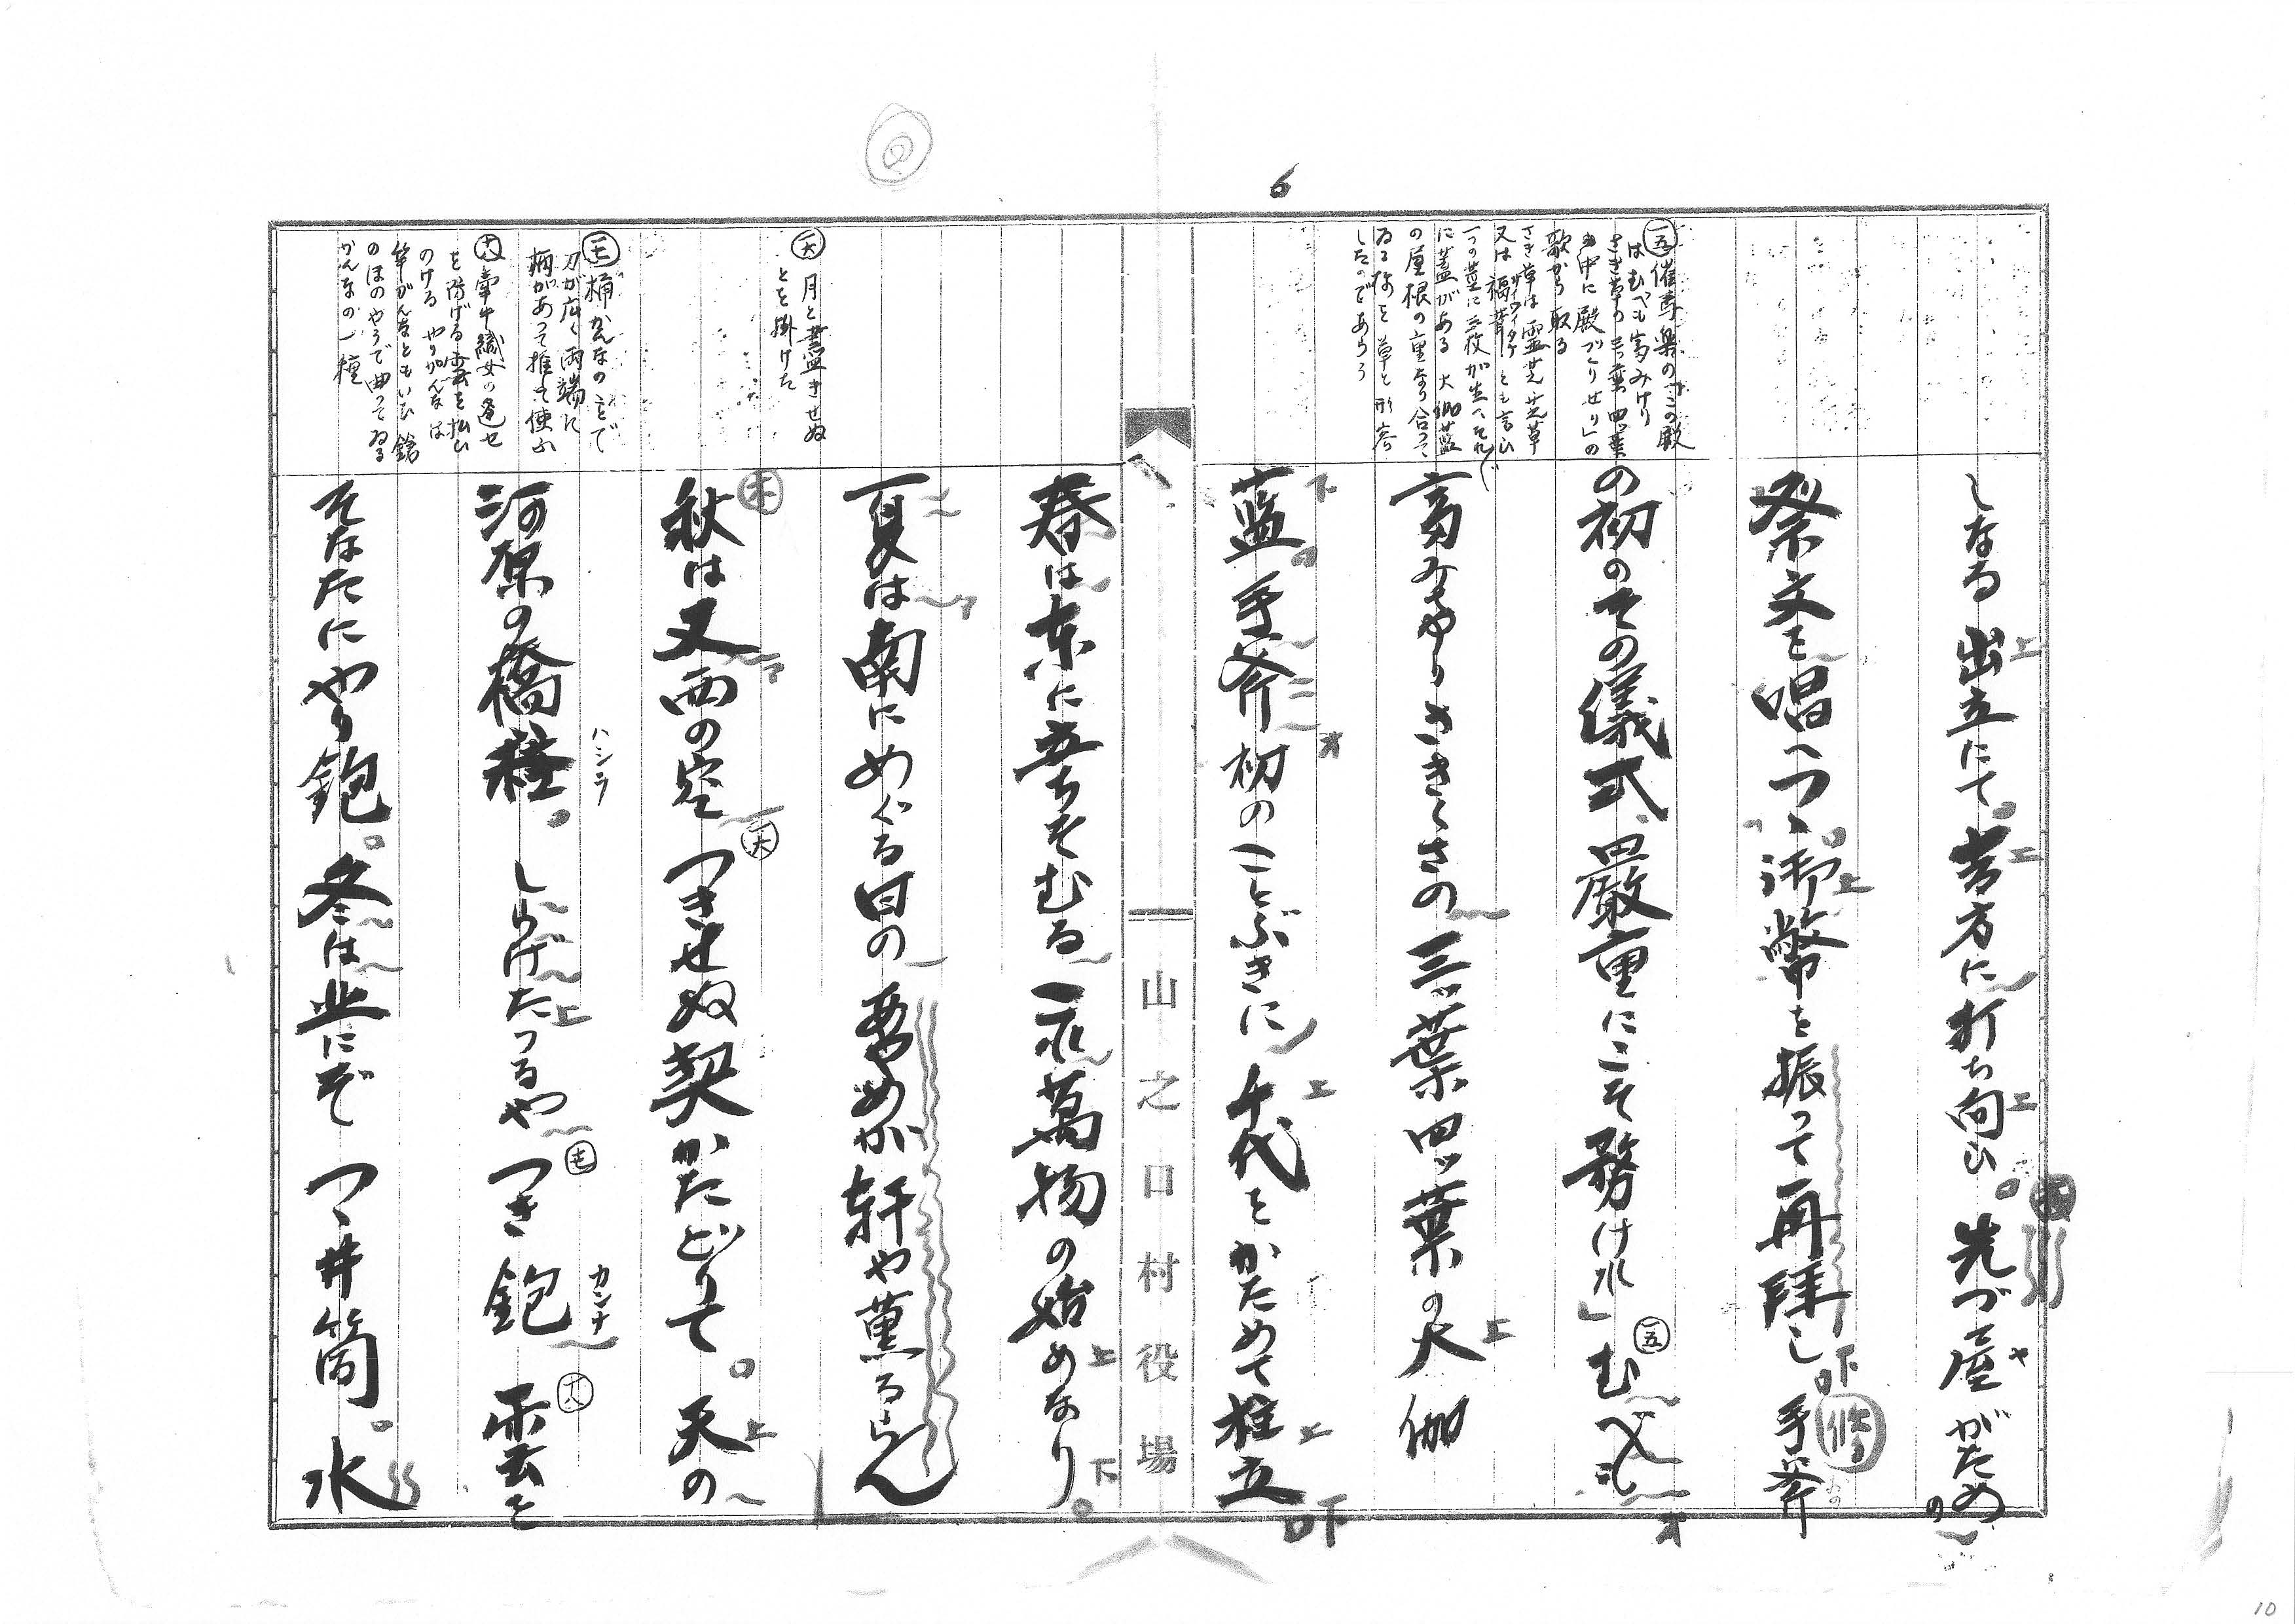 6
㊀五 催馬楽の「この殿
はむべも富みけり
さき草の三葉四葉
の中に殿づくりせり」の
歌から取る
さき草は霊芝芝草
又は福茸とも言ひ
サイワイタケ
一つの茎に三枝が生へそれ
に蓋がある 大伽藍
の屋根の重なり合って
ゐる様を草と形容
したのであらう
しなる出立にて。吉方に打ち向ひ。先づ屋がための
ヤ
祭文を唱へつゝ。御幣を振って再拝し手斧
の初のその儀式、厳重にこそ務けれ」むべも
富みけりさきくさの三ッ葉四ッ葉の大伽
藍。手斧初のことぶきに千代をかためて柱立
山之口村役場
春は東に立ちそむる一求萬物の始めなり。
夏は南にめぐる日のあやめが軒や薫るらん
秋は又西の空つきせぬ契かたどりて。天の
河原の橋柱。しらげたつるやつき鉋雲を
ハシラ
カンナ
そなたにやり鉋。冬は北にぞつゝ井筒。水
一六 月と尽きせぬ
とを掛けた
一七 桶かんなのことで
刀が広く両端に
柄があって推て使ふ
一八 牽牛織女の逢セ
を防げる雲を払ひ
のける やりがんなは
竿がんなともいひ鎗
のほのやうで曲ってゐる
かんなの一種
10